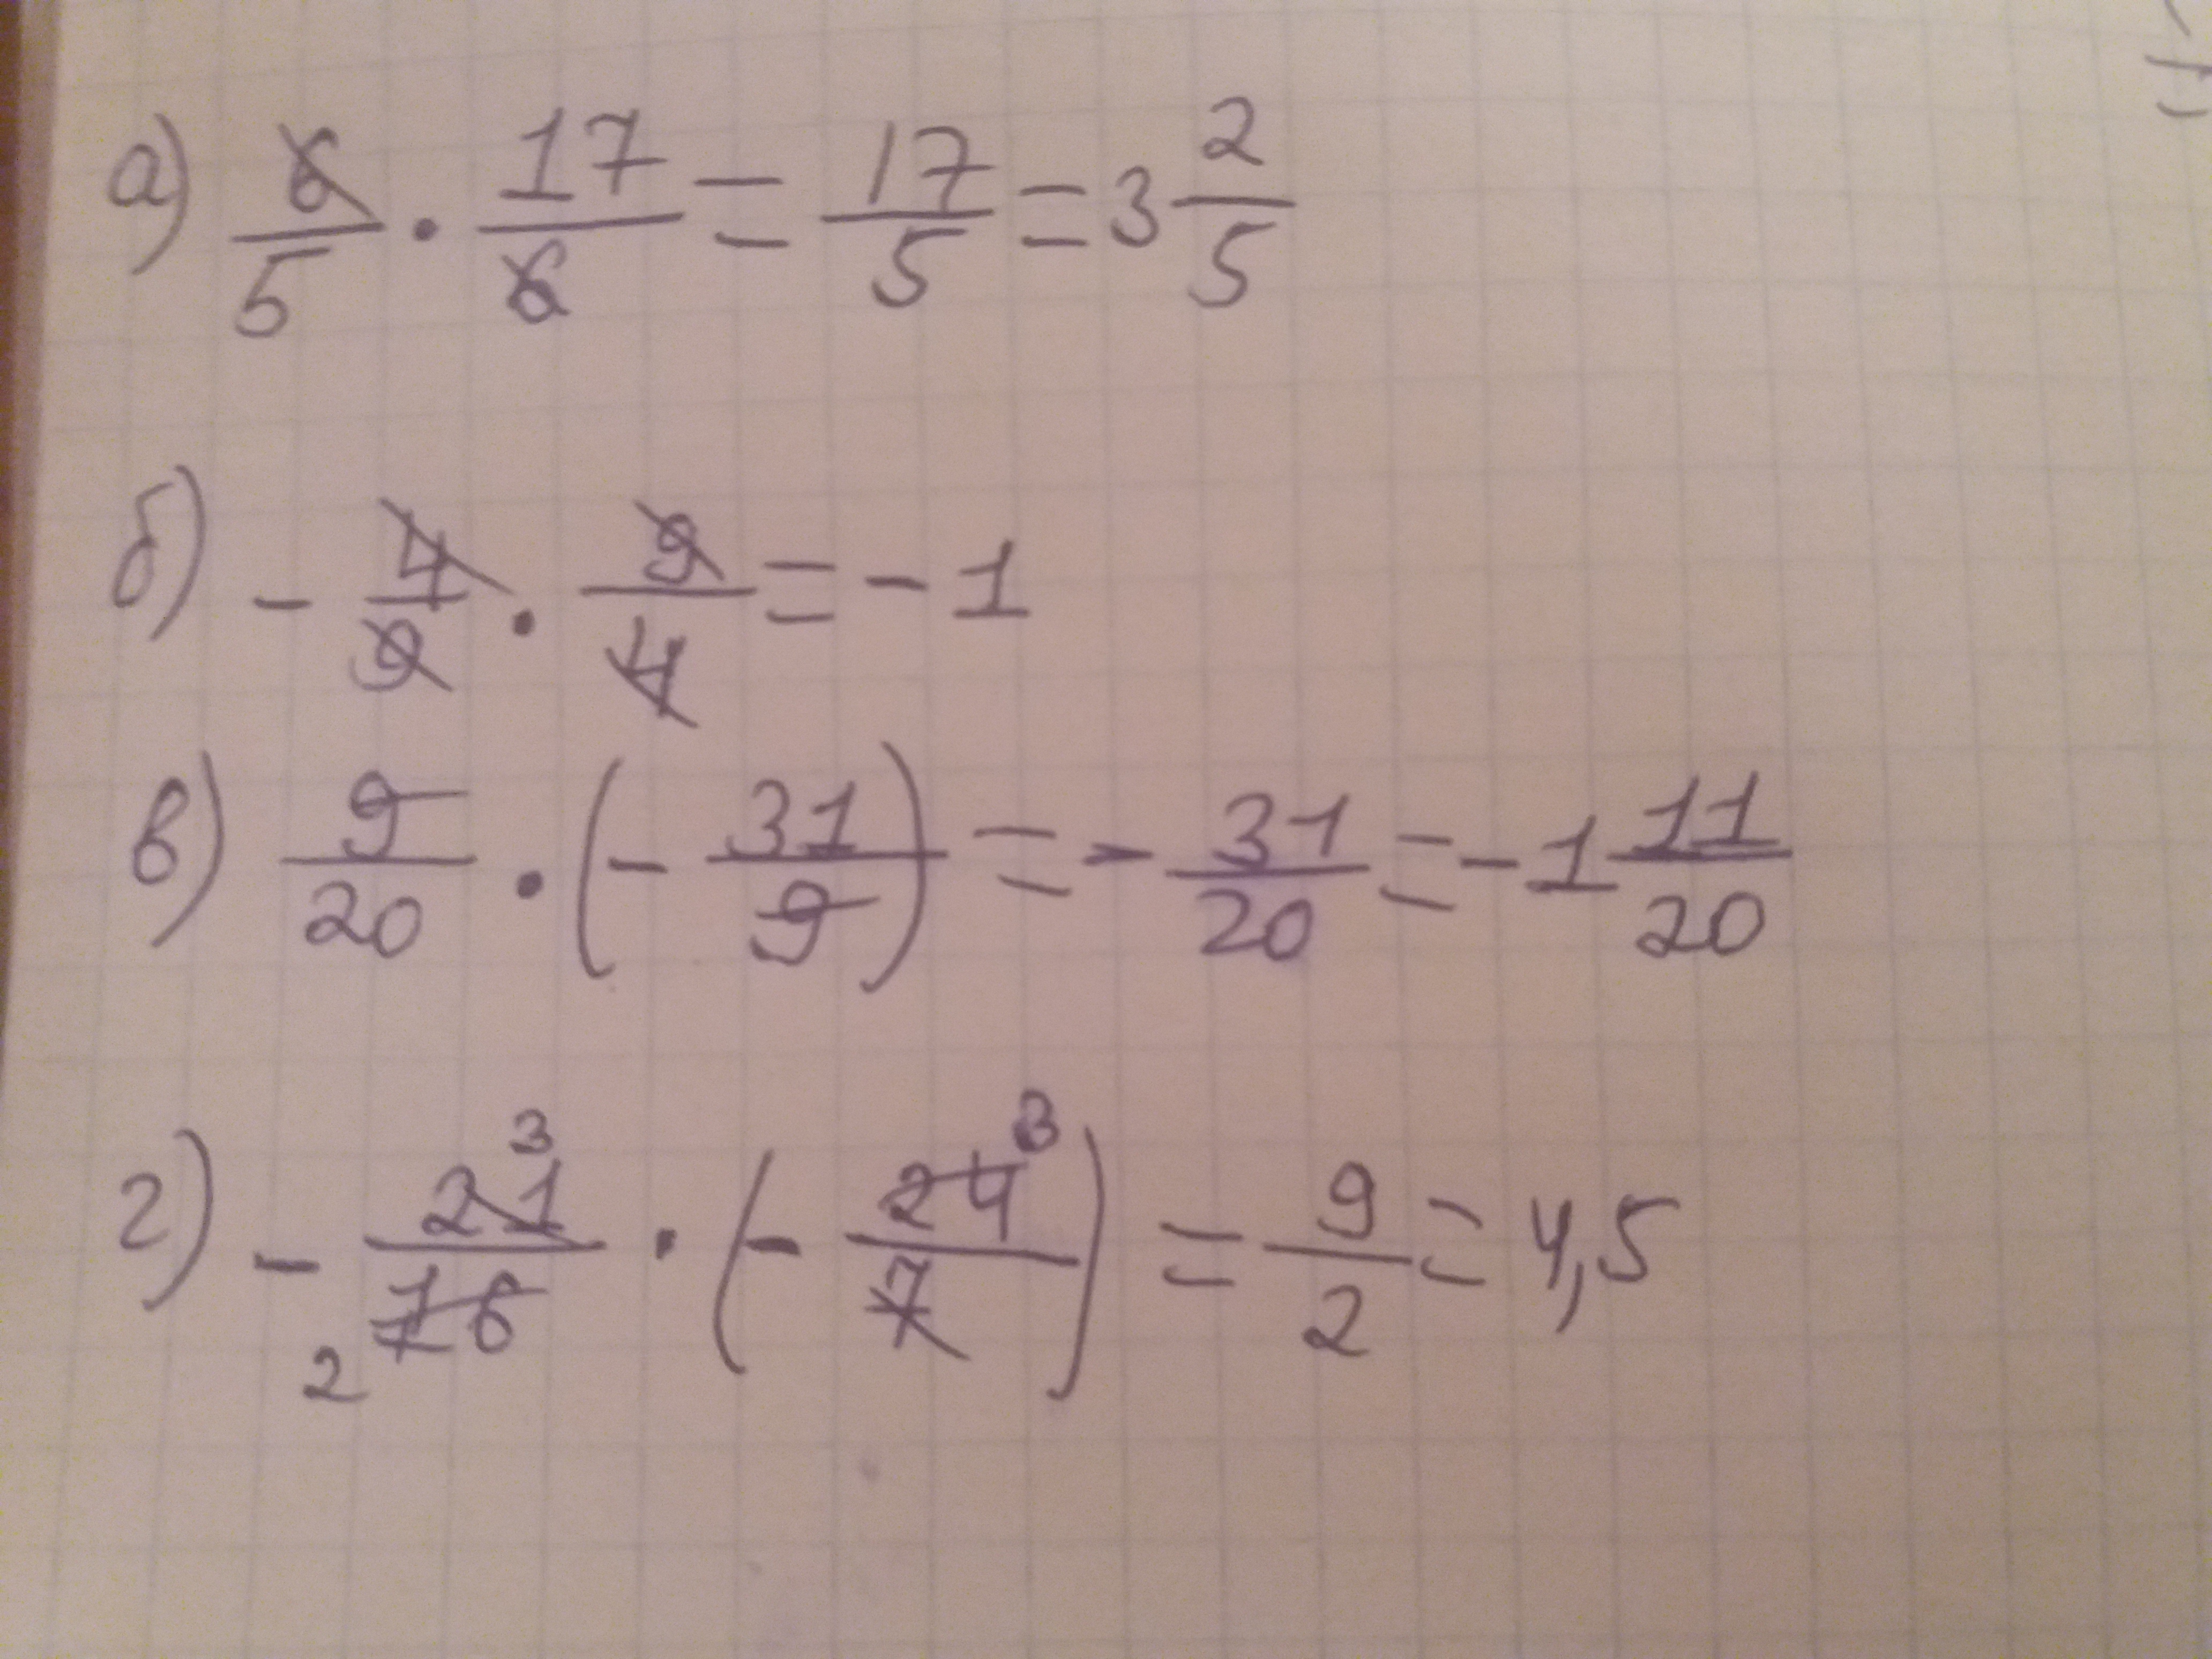 а) 6/5 · 17/6 = 17/5 = 3 2/5
б) - 4/9 · 9/4 = - 1
в) 9/20 · (- 31/9) = - 31/20 = - 1 11/20
г) - 21 3/16 2 · (- 24 3/7) = 9/2 = 4,5